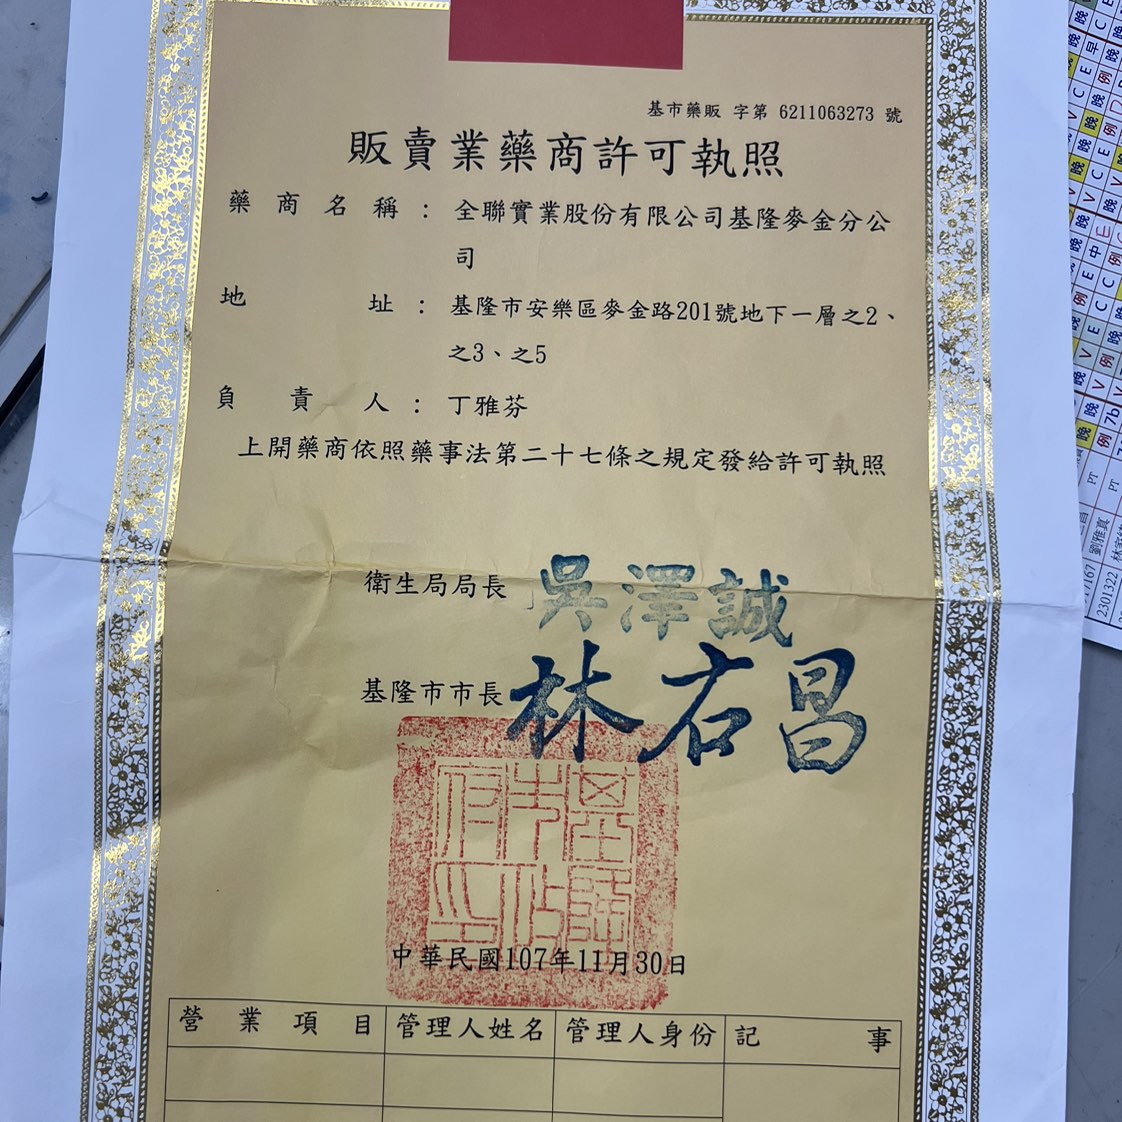 基市藥販 字第 6211063273 號
販賣業藥商許可執照
藥商名稱：全聯實業股份有限公司基隆麥金分公
司
地址：基隆市安樂區麥金路201號地下一層之2、
之3、之5
負責人：丁雅芬
上開藥商依照藥事法第二十七條之規定發給許可執照
衛生局局長 吳澤誠
基隆市市長 林右昌
基隆市政府印
中華民國107年11月30日
營業項目 管理人姓名 管理人身份 記事
2301322 劉雅真 PT